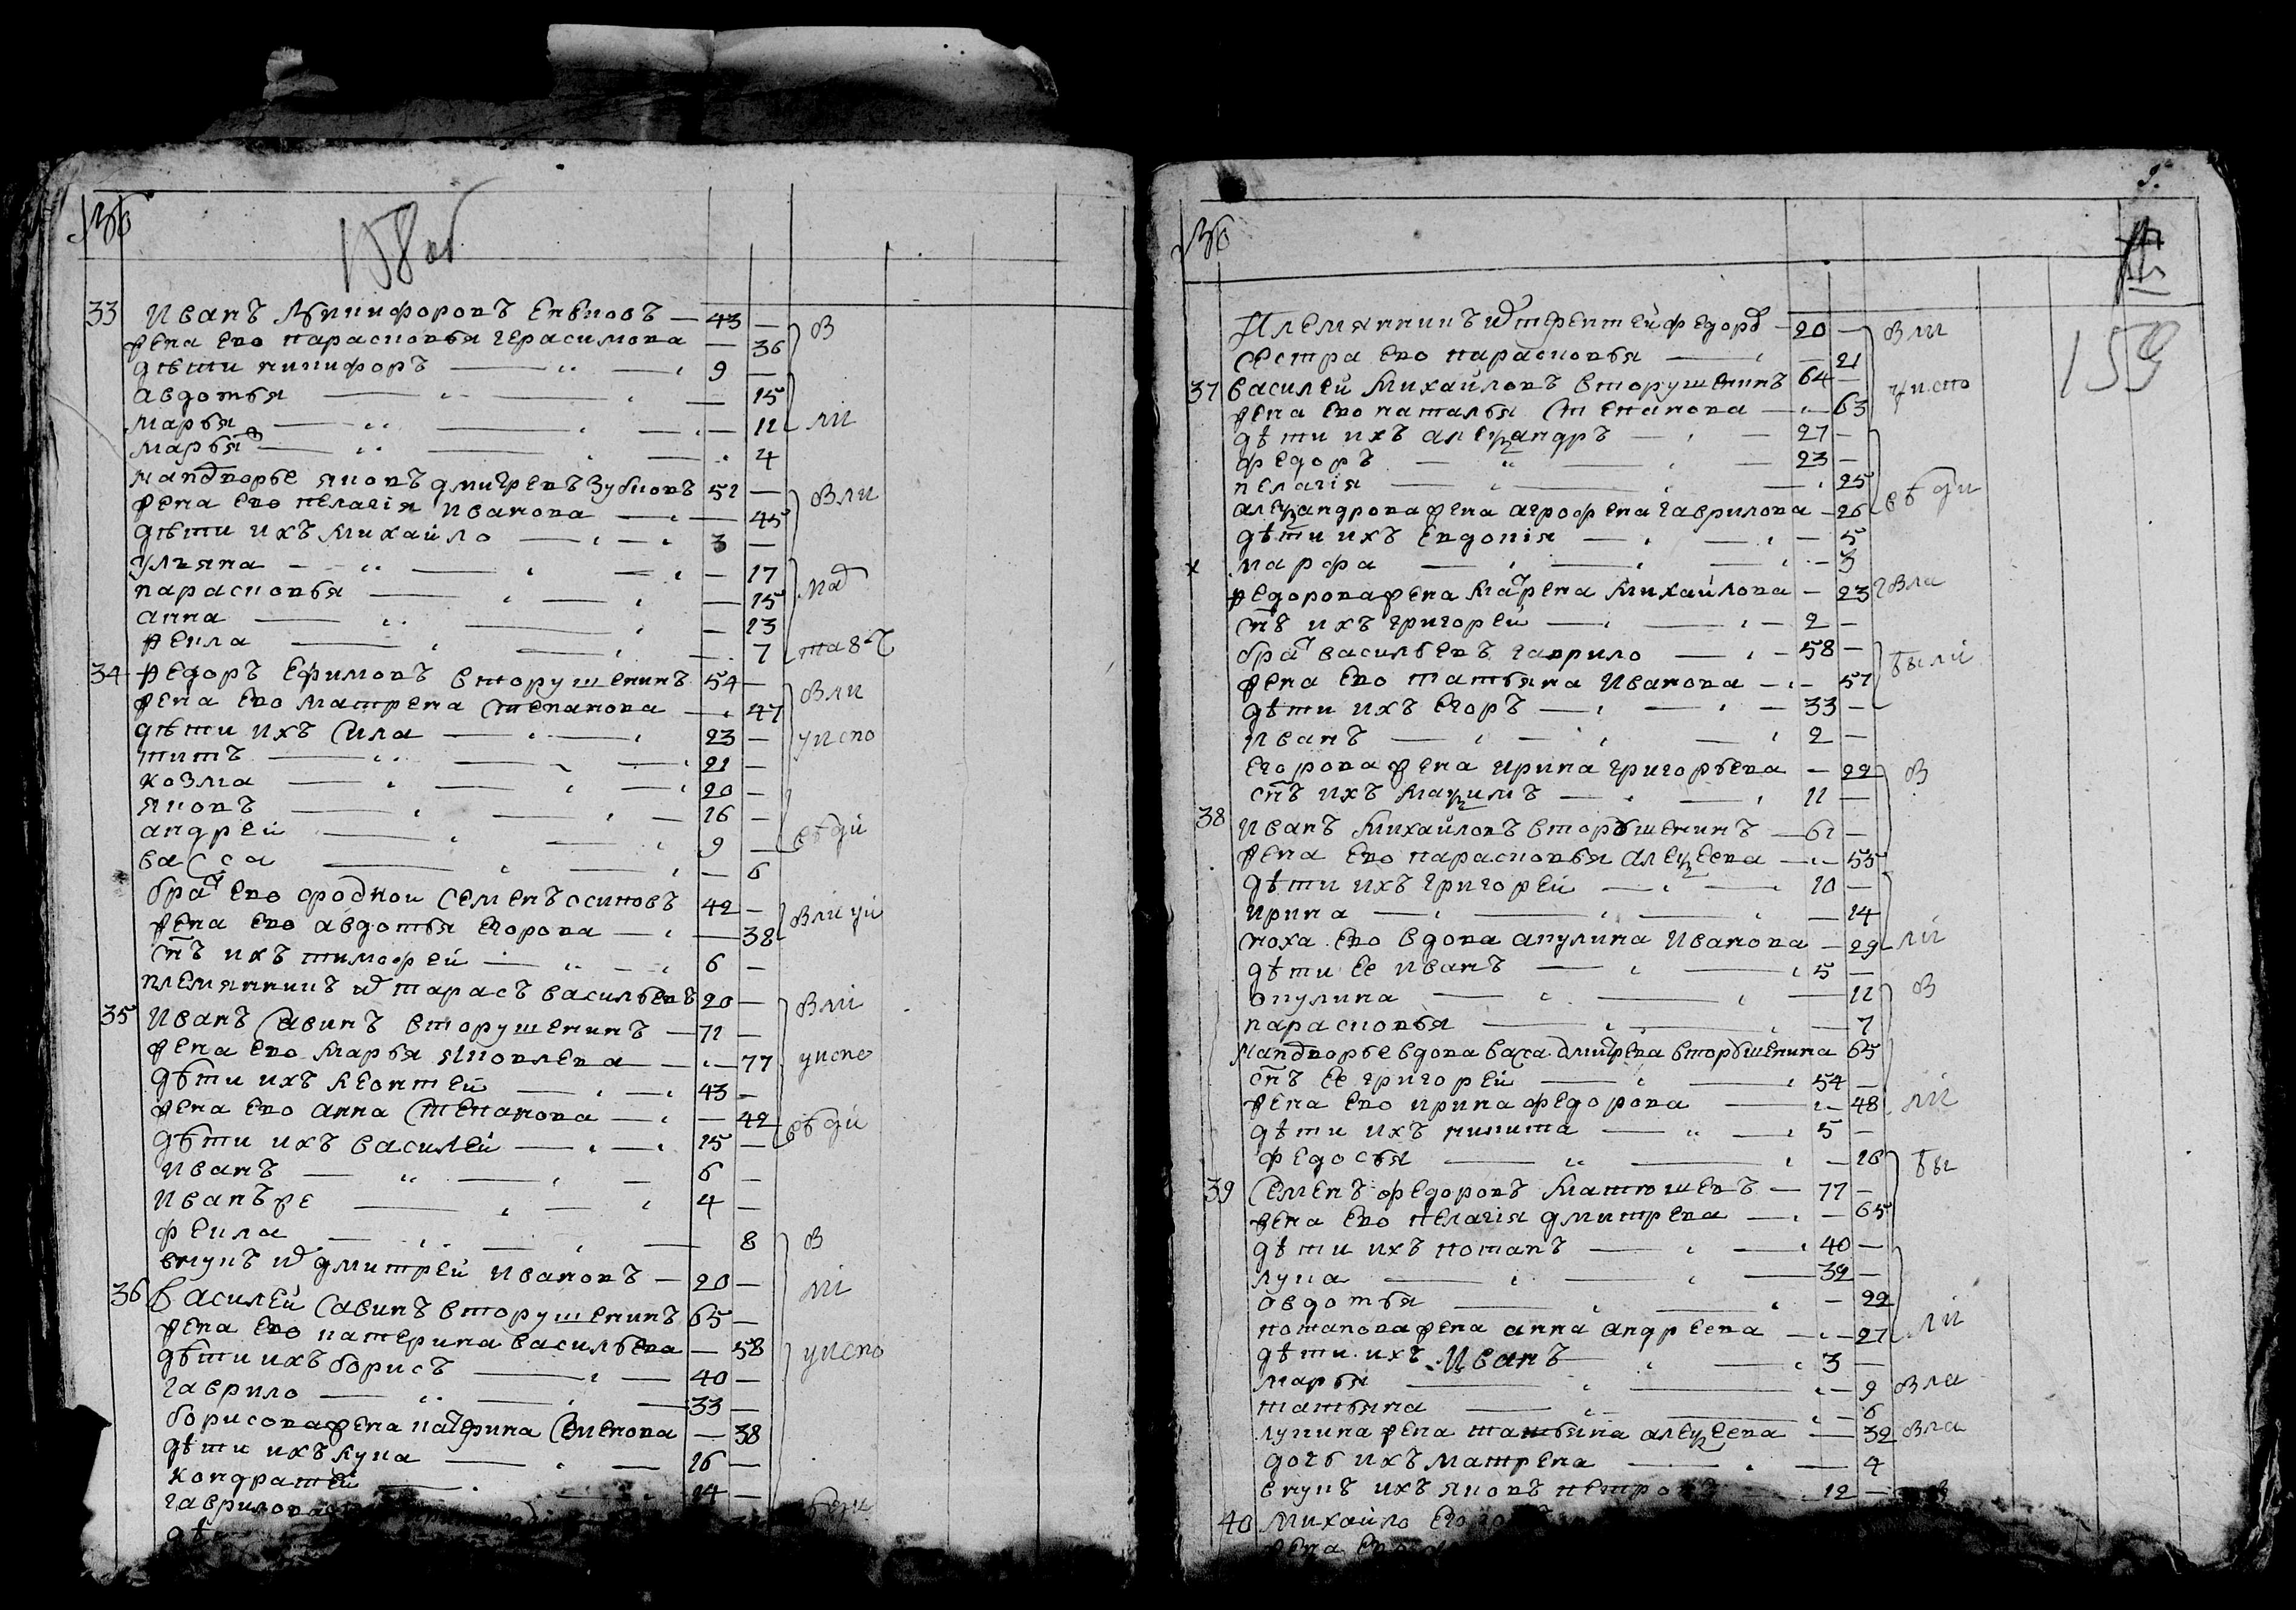 158 об
33 Иванъ Никифоровъ — 43 —
жена ево парасковья герасимова — 36
дѣти никифоръ — 9 —
авдотья — 15
марья — 11
марья ж — 4
на подворье яковъ дмитревъ Зубковъ 51 —
жена ево пелагiя Иванова — 45
дѣти ихъ михайло — 3 —
ульяна — 17
парасковья — 15
анна — 13
фекла — 7
34 Федоръ Ефимовъ вторушенинъ 54 —
жена ево матрена степанова — 47
дѣти ихъ сила — 23 —
титъ — 21 —
козма — 20 —
яковъ — 16 —
андрей — 9 —
васса — 6
братъ ево сродной семенъ осиповъ 42 —
жена ево авдотья егорова — 38
снъ ихъ тимофей — 6 —
племянникъ тарасъ васильевъ 20 —
35 Иванъ Савинъ вторушенинъ — 71 —
жена ево марья яковлева — 77
дѣти ихъ леонтей — 43 —
жена ево анна степанова — 42
дѣти ихъ василей — 15 —
иванъ — 6 —
иванъ же — 4 —
фекла — 8
внукъ дмитрей ивановъ — 20 —
36 Василей Савинъ вторушенинъ 65 —
жена ево катерина васильева — 58
дѣти ихъ борисъ — 40 —
гаврило — 33 —
борисова жена катерина семенова — 38
дѣти ихъ лука — 16 —
кондратей — 14 —
гаврилова
дѣ
в
ли
вли
вли
исто
вѣди
вли
исто
вѣди
в
ли
исто
159
Племянникъ терентей федоръ — 20 —
сестра ево парасковья — 21
37 василей михайловъ вторушенинъ 64 —
жена ево наталья степанова — 63
дѣти ихъ алеѯандръ — 27 —
федоръ — 23 —
пелагiя — 25
алеѯандрова жена агрофена гаврилова — 26
дѣти ихъ евдокiя — 5
x марфа — 3
федорова жена матрена михайлова — 23
снъ ихъ григорей — 2 —
братъ васильевъ гаврило — 58 —
жена ево татьяна иванова — 51
дѣти ихъ егоръ — 33 —
иванъ — 2 —
егорова жена ирина григорьева — 22
снъ ихъ маѯимъ — 11 —
38 иванъ михайловъ вторушенинъ — 61 —
жена ево парасковья алеѯеева — 55
дѣти ихъ григорей — 10 —
ирина — 14
сноха ево вдова акулина иванова — 29
дѣти ее иванъ — 5 —
окулина — 11
парасковья — 7
на подворье вдова васа дмитрева вторушенина 65
снъ ее григорей — 54 —
жена ево ирина федорова — 48
дѣти ихъ никита — 5 —
федосья — 16
39 семенъ федоровъ матюшевъ — 77 —
жена ево пелагiя дмитрева — 65
дѣти ихъ потапъ — 40 —
лука — 32 —
авдотья — 22
потапова жена анна андреева — 27
дѣти ихъ иванъ — 3 —
марья — 9
татьяна — 6
лукина жена татьяна алеѯеева — 32
дочь ихъ матрена — 4
внукъ ихъ яковъ — 12 —
40 михайло
жена
вли
исто
вѣди
вла
были
в
ли
в
ли
бы
ли
вла
вла